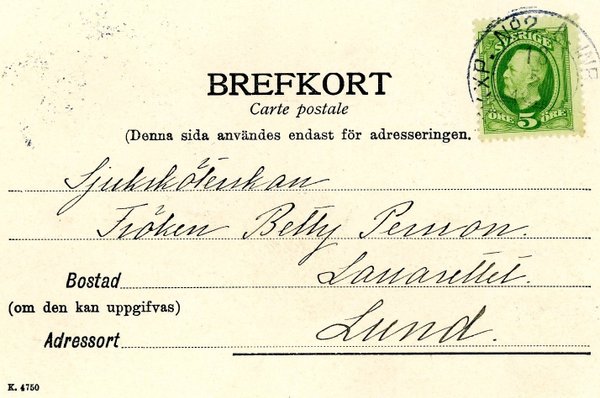 PXP. No 2
SVERIGE
ÖRE 5 ÖRE
BREFKORT
Carte postale
(Denna sida användes endast för adresseringen.
Sjuksköterskan
Fröken Betty Persson.
Bostad Lasarettet.
(om den kan uppgifvas)
Adressort Lund.
K. 4750